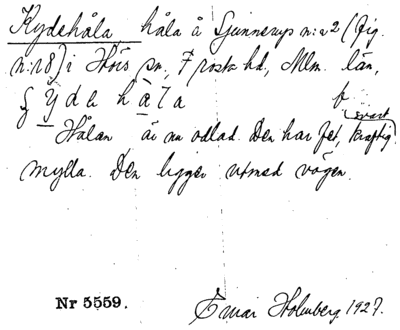 Kydehåla, håla å Gunnerup n:r 2 (fig.
n:r 8) i Hörs sn, Frosta hd, Mlm. län,
ȳdehåla f.
Hålan är nu odlad. Den har fet, svart kraftig
mylla. Den ligger utmed vägen.
Nr 5559.
Einar Holmberg. 1927.